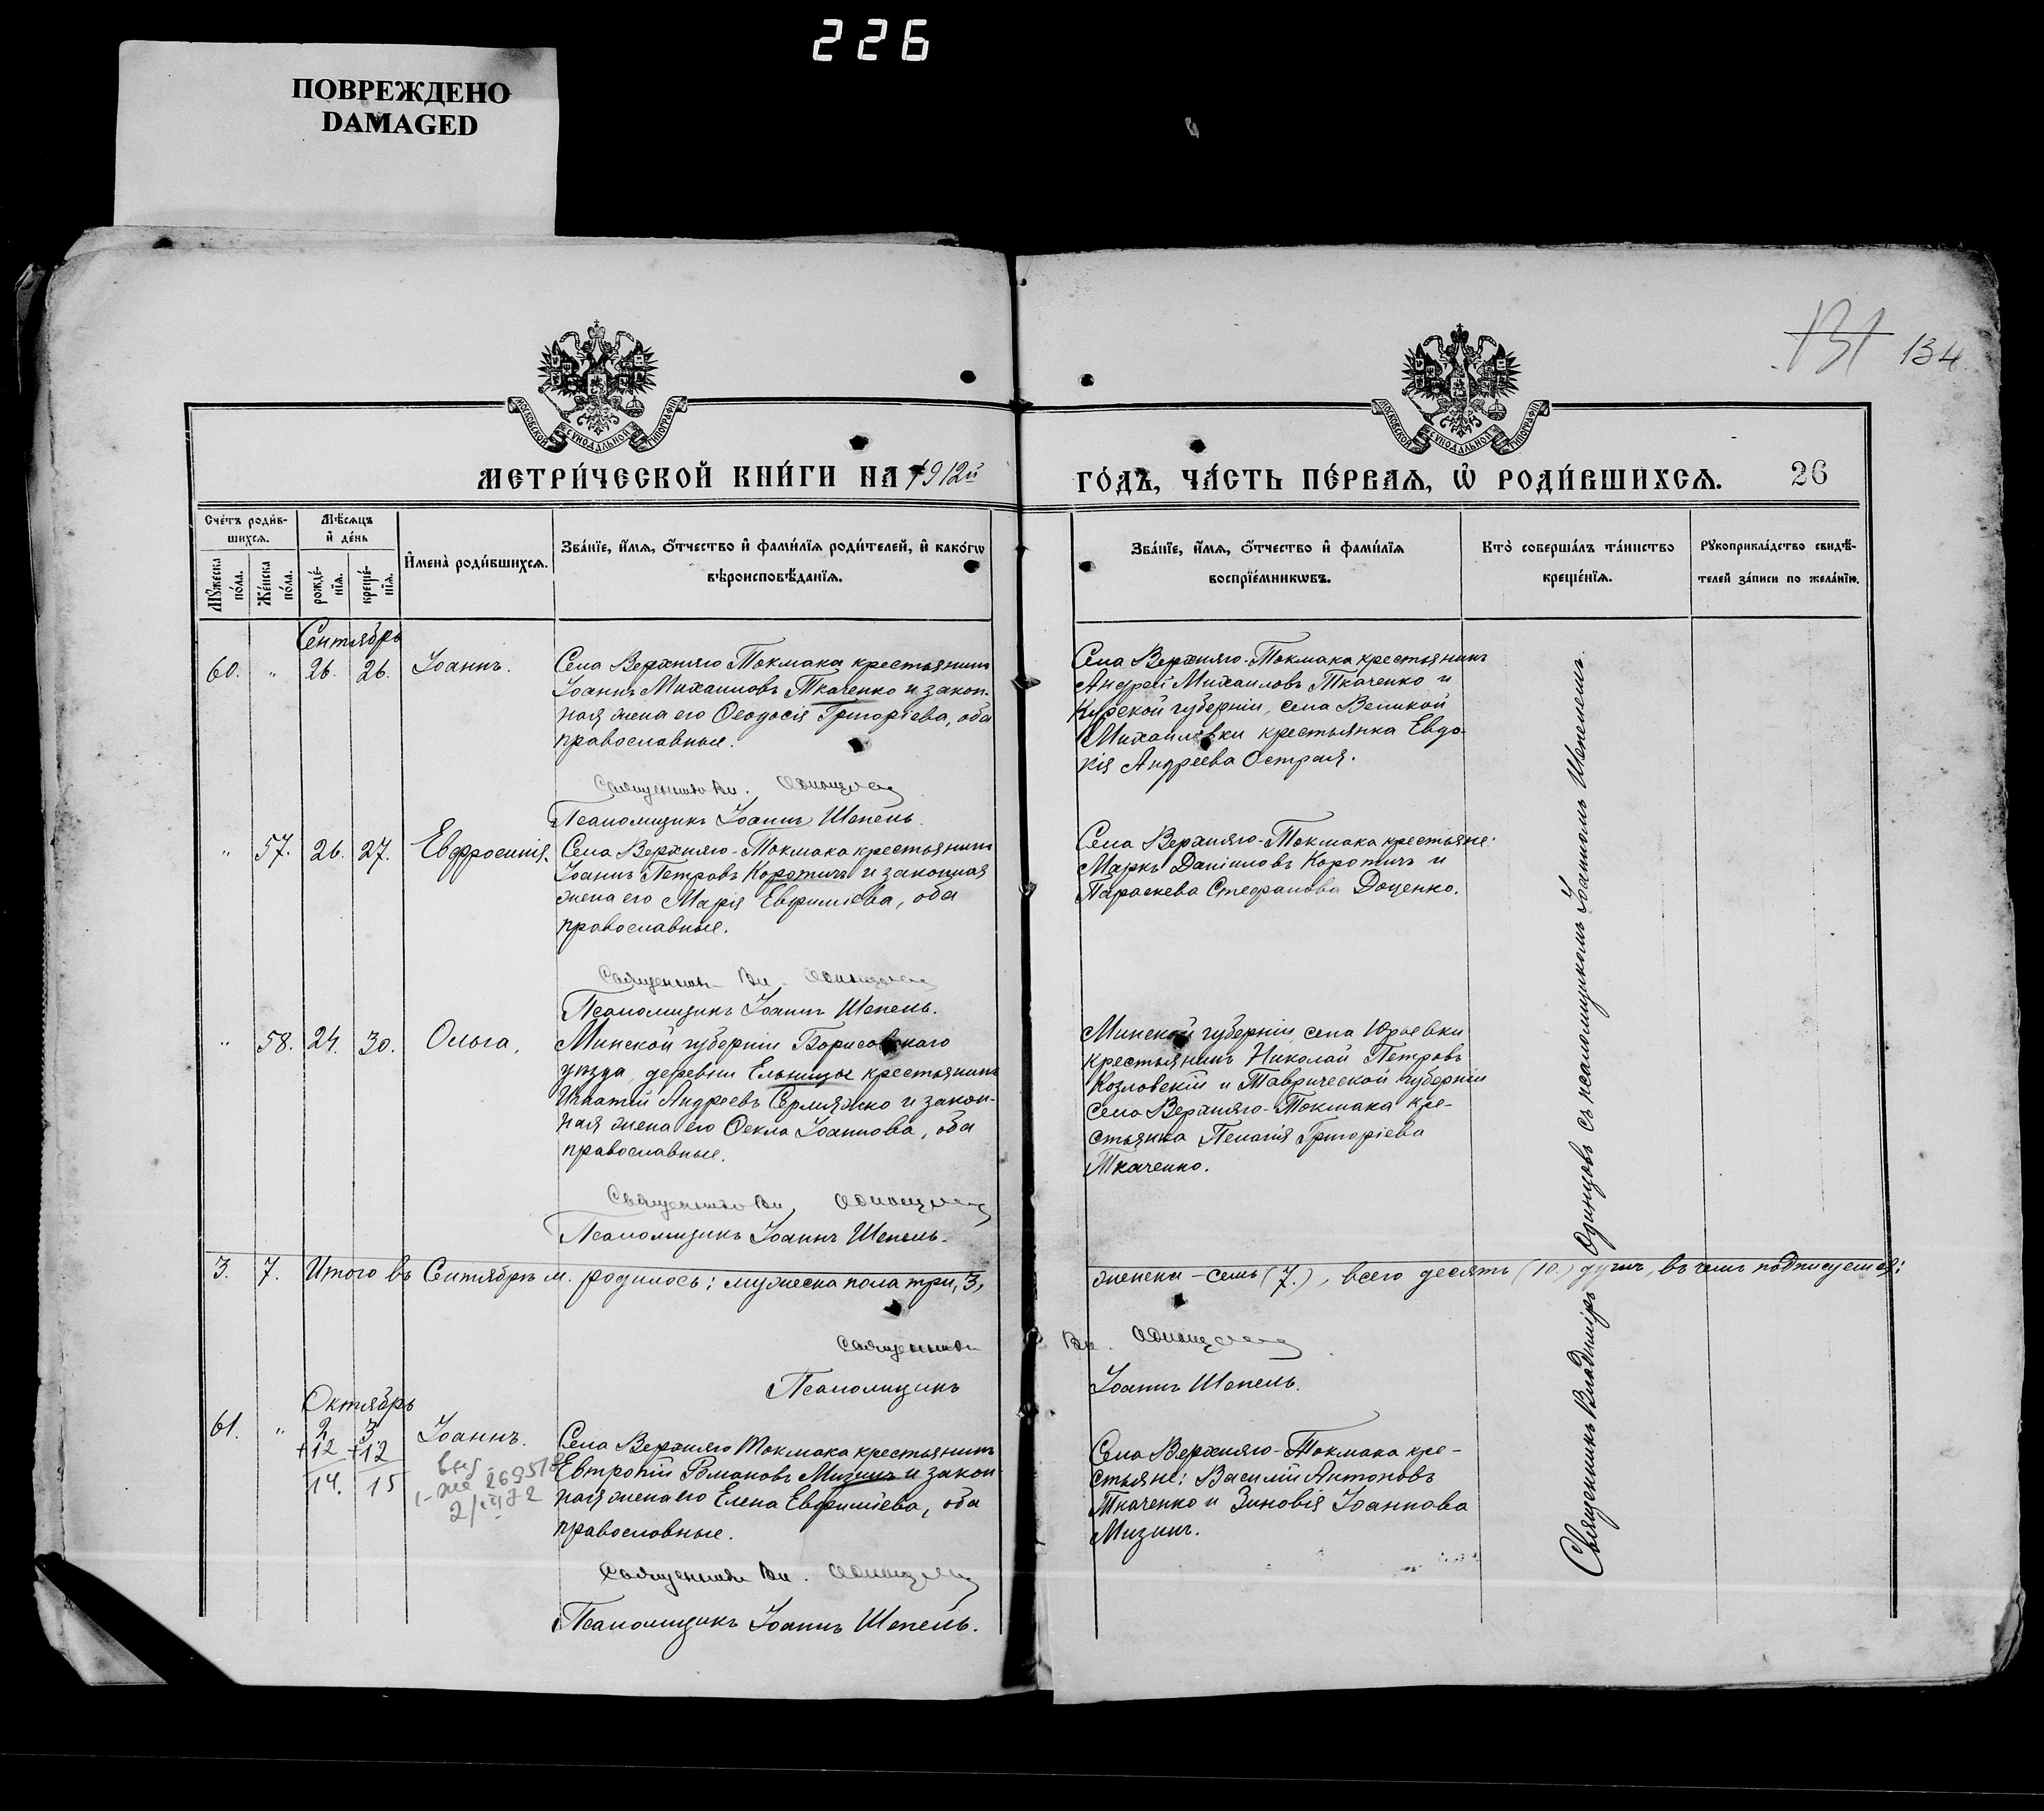 226
ПОВРЕЖДЕНО
DAMAGED
131 134
МОСКОВСКОЙ СѴНОДАЛЬНОЙ ТИПОГРАФІИ
МОСКОВСКОЙ СѴНОДАЛЬНОЙ ТИПОГРАФІИ
МЕТРИ́ЧЕСКОЙ КНИ́ГИ НА 1912й
ГО́ДЪ, ЧА́СТЬ ПЕ́РВАѦ, Ѡ РОДИ́ВШИХСѦ. 26
Сче́тъ роди́в-
шихсѧ.
Мꙋ́жеска по́ла.
Же́нска по́ла.
Мѣ́сѧцъ
и҆ де́нь
рожде́-
нїѧ.
креще́-
нїѧ.
И҆мена̀ роди́вшихсѧ.
Зва́нїе, и҆́мѧ, ѻ҆́тчество и҆ фами́лїѧ роди́телей, и҆ како́гѡ
вѣроисповѣ́данїѧ.
Зва́нїе, и҆́мѧ, ѻ҆́тчество и҆ фами́лїѧ
воспрїе́мникѡвъ.
Кто̀ соверша́лъ та́инство
креще́нїѧ.
Рꙋкоприкла́дство свидѣ́-
телей за́писи по жела́нїю.
Сентябрь
60. " 26. 26. Іоаннъ.
Села Верхняго Токмака крестьянинъ
Іоаннъ Михаиловъ Ткаченко и закон-
ная жена его Ѳеодосія Григоріева, оба
православные.
Священникъ Вл. Одинцовъ
Псаломщикъ Іоаннъ Шепель.
Села Верхняго-Токмака крестьянинъ
Андрей Михаиловъ Ткаченко и
Курской губерніи, села Великой
Михаиловки крестьянка Евдо-
кія Андреева Острая.
" 57. 26. 27. Евфросинія.
Села Верхняго-Токмака крестьянинъ
Іоаннъ Петровъ Коротичъ и законная
жена его Марія Евфиміева, оба
православные.
Священникъ Вл. Одинцовъ
Псаломщикъ Іоаннъ Шепель.
Села Верхняго-Токмака крестьяне:
Маркъ Даніиловъ Коротичъ и
Параскева Стефанова Доценко.
" 58. 24. 30. Ольга.
Минской губерніи Борисовскаго
уѣзда, деревни Ельницы крестьянинъ
Игнатій Андреевъ Сермяжко и закон-
ная жена его Ѳекла Іоаннова, оба
православные.
Священникъ Вл. Одинцовъ
Псаломщикъ Іоаннъ Шепель.
Минской губерніи, села Юрьевки
крестьянинъ Николай Петровъ
Козловскій и Таврической губерніи
села Верхняго-Токмака кре-
стьянка Пелагія Григоріева
Ткаченко.
3. 7. Итого въ Сентябрѣ м. родилось: мужеска пола три, 3,
женска - семь (7.), всего десять (10.) душъ, въ чемъ подписуемся:
Священникъ Вл. Одинцовъ
Псаломщикъ Іоаннъ Шепель.
Октябрь
61. " 2 3 Іоаннъ.
+12 +12
14. 15
2/IV 72
Села Верхняго Токмака крестьянинъ
Евтропій Романовъ Мизинъ и закон-
ная жена его Елена Евфиміева, оба
православные.
Священникъ Вл. Одинцовъ
Псаломщикъ Іоаннъ Шепель.
Села Верхняго-Токмака кре-
стьяне: Василій Антоновъ
Ткаченко и Зиновія Іоаннова
Мизинъ.
Священникъ Владиміръ Одинцовъ съ псаломщикомъ Іоанномъ Шепелемъ.